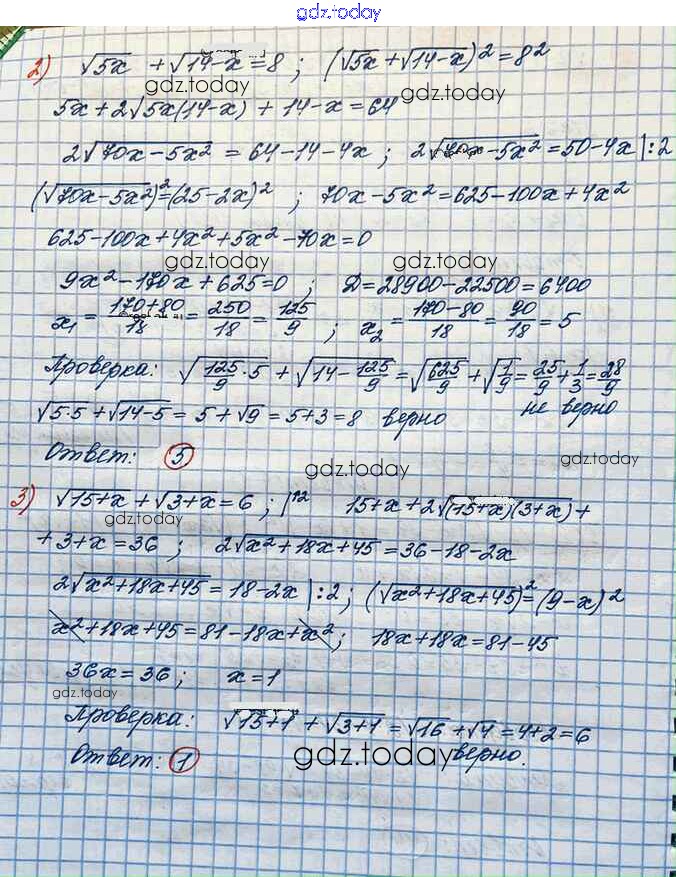 gdz.today
2) √5x + √14-x = 8 ; (√5x + √14-x)² = 8²
gdz.today gdz.today
5x + 2√5x(14-x) + 14-x = 64
2√70x-5x² = 64-14-4x ; 2√70x-5x² = 50-4x |:2
(√70x-5x²)² = (25-2x)² ; 70x-5x² = 625-100x+4x²
625-100x+4x²+5x²-70x=0
gdz.today gdz.today
9x²-170x+625=0 ; D=28900-22500=6400
x₁ = 170+80/18 = 250/18 = 125/9 ; x₂ = 170-80/18 = 90/18 = 5
Проверка: √125/9·5 + √14-125/9 = √625/9 + √1/9 = 25/9 + 1/3 = 28/9
не верно
√5·5 + √14-5 = 5+√9 = 5+3 = 8 верно
Ответ: 5
gdz.today gdz.today
3) √15+x + √3+x = 6 ; |² 15+x+2√(15+x)(3+x) +
gdz.today
+3+x=36 ; 2√x²+18x+45 = 36-18-2x
2√x²+18x+45 = 18-2x |:2 ; (√x²+18x+45)² = (9-x)²
x²+18x+45=81-18x+x² ; 18x+18x=81-45
36x=36 ; x=1
gdz.today
Проверка: √15+1 + √3+1 = √16 + √4 = 4+2 = 6
верно.
Ответ: 1
gdz.today